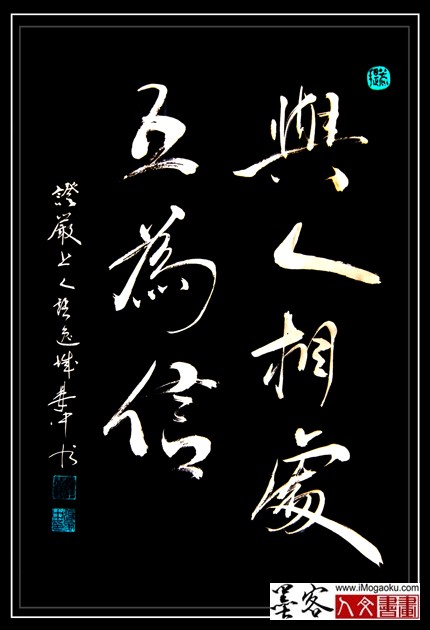 與人相處
互為信
證嚴上人語
墨客
www.iMogaoku.com
人文書畫